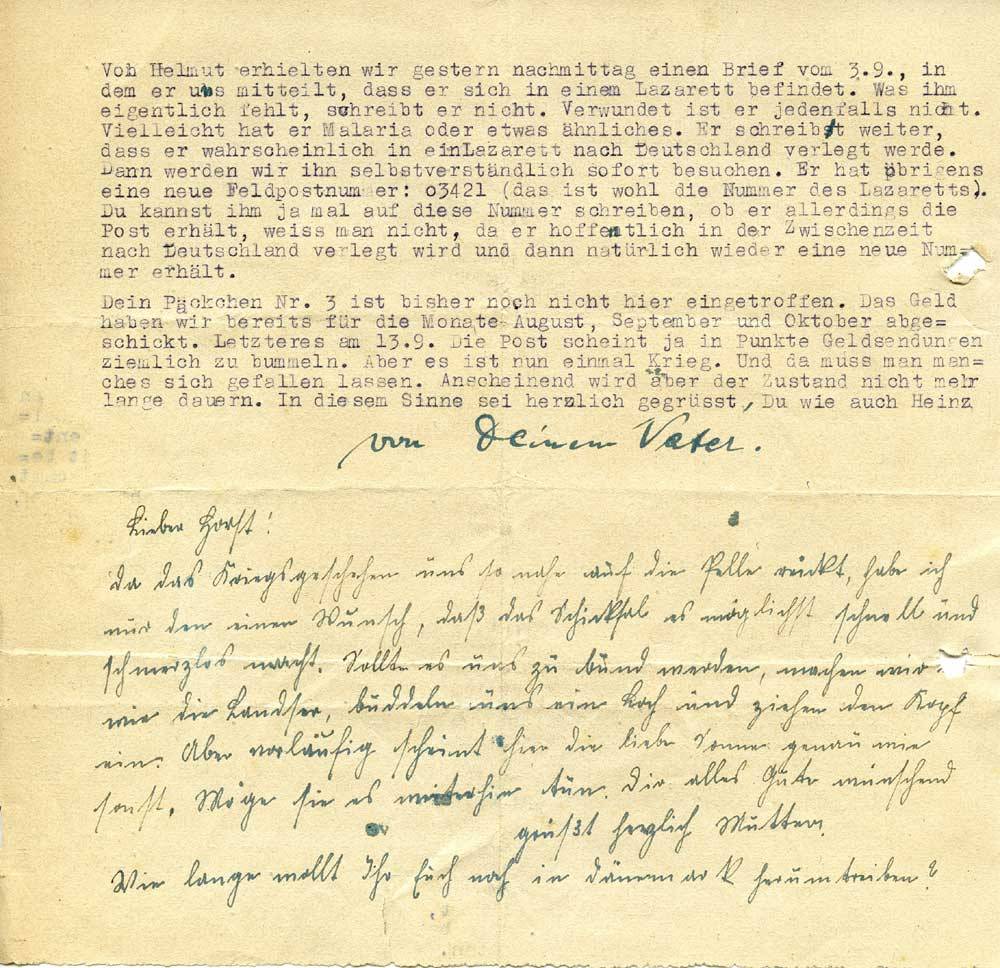 Von Helmut erhielten wir gestern nachmittag einen Brief vom 3.9., in
dem er uns mitteilt, dass er sich in einem Lazarett befindet. Was ihm
eigentlich fehlt, schreibt er nicht. Verwundet ist er jedenfalls nicht.
Vielleicht hat er Malaria oder etwas ähnliches. Er schreibt weiter,
dass er wahrscheinlich in einLazarett nach Deutschland verlegt werde.
Dann werden wir ihn selbstverständlich sofort besuchen. Er hat übrigens
eine neue Feldpostnummer: o3421 (das ist wohl die Nummer des Lazaretts).
Du kannst ihm ja mal auf diese Nummer schreiben, ob er allerdings die
Post erhält, weiss man nicht, da er hoffentlich in der Zwischenzeit
nach Deutschland verlegt wird und dann natürlich wieder eine neue Num=
mer erhält.
Dein Päckchen Nr. 3 ist bisher noch nicht hier eingetroffen. Das Geld
haben wir bereits für die Monate August, September und Oktober abge=
schickt. Letzteres am 13.9. Die Post scheint ja in Punkte Geldsendungen
ziemlich zu bummeln. Aber es ist nun einmal Krieg. Und da muss man man=
ches sich gefallen lassen. Anscheinend wird aber der Zustand nicht mehr
lange dauern. In diesem Sinne sei herzlich gegrüsst, Du wie auch Heinz
von Deinem Vater.
Lieber Horst!
Da das Kriegsgeschehen uns so nahe auf die Pelle rückt, habe ich
nur den einen Wunsch, daß das Schicksal es möglichst schnell und
schmerzlos macht. Sollte es uns zu bunt werden, machen wir
wie die Landser, buddeln uns ein Loch und ziehen den Kopf
ein. Aber vorläufig scheint hier die liebe Sonne genau wie
sonst. Möge sie es weiterhin tun. Dir alles Gute wünschend
grüßt herzlich Muttern.
Wie lange wollt Ihr Euch noch in Dänemark herumtreiben?